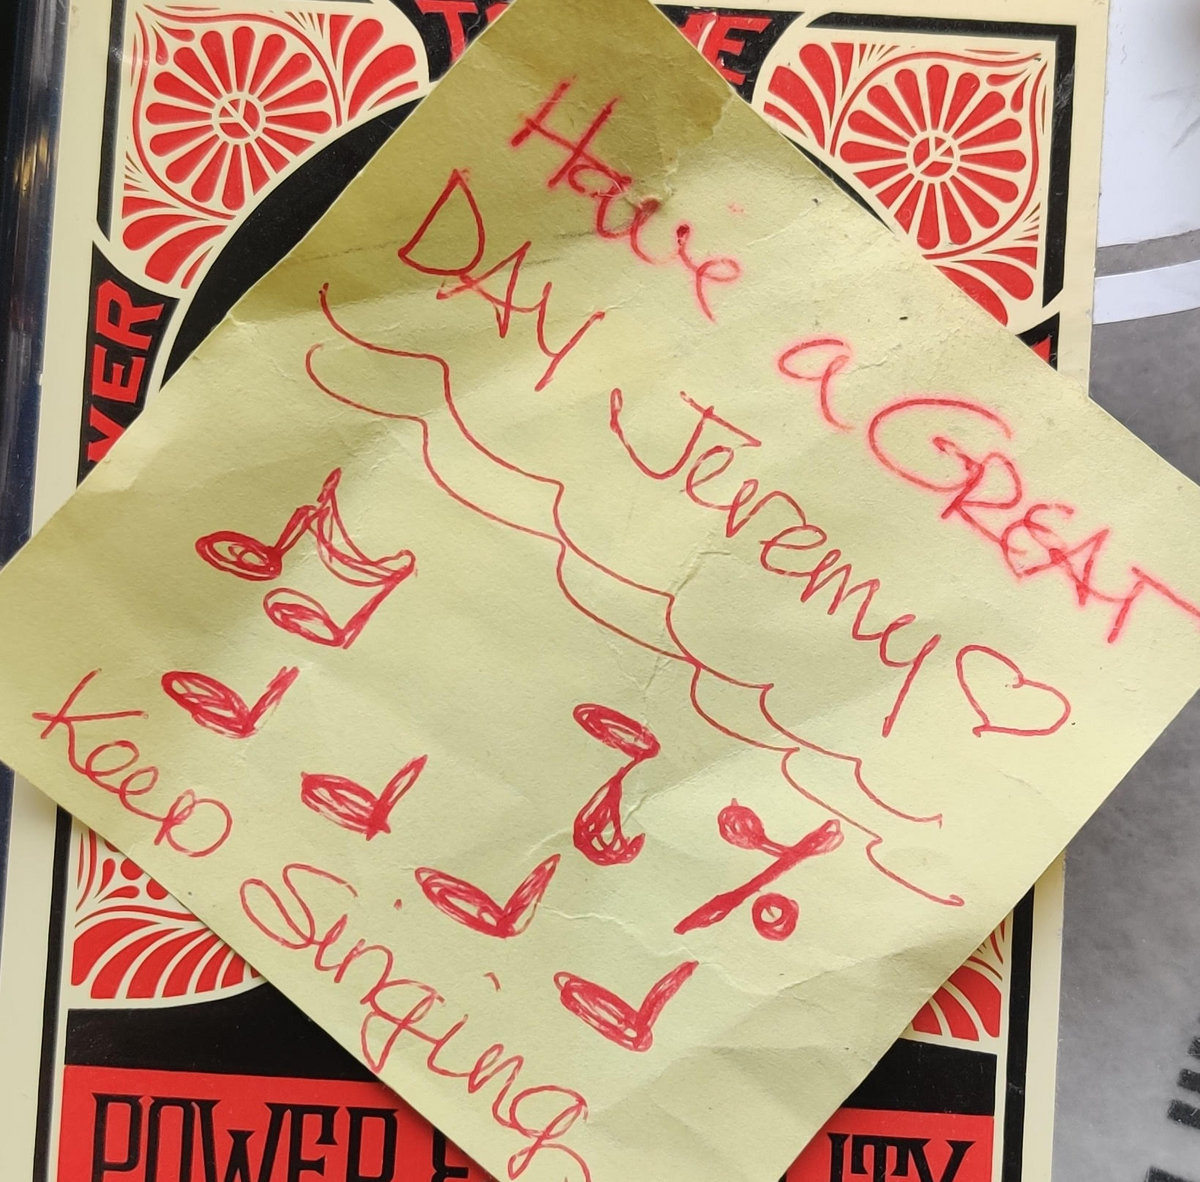 Have a GREAT
DAY Jeremy
Keep Singing
POWER &
ITY
VER